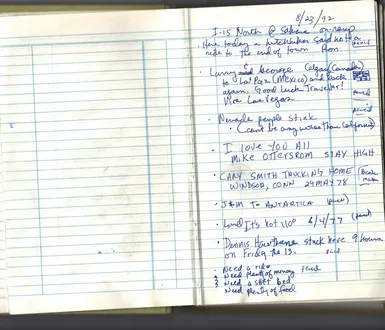 8/23/92
I-15 North @ Sahara on-ramp
Here today a hitchhiker said not a
ride to the end of town from
pencil
• Larry & George Calgary (Canada)
to La Paz (Mexico) and back
again. Good Luck Traveler!
Viva Las Vegas
pencil
• Nevada people stink
pencil
• (can't be any worse than California)
• I love YOU All
MIKE OTTERSROM STAY HIGH
• CARY SMITH TRUCKING HOME
WINDSOR, CONN 29 MAY 78
• J & M TO ANTARTICA
• It's hot 110° 6/4/77
• Dennis Hawthorne stuck here 9 hours
on Friday the 13.
• Need a ride
2 Need plenty of money
3 Need a soft bed
Need plenty of food